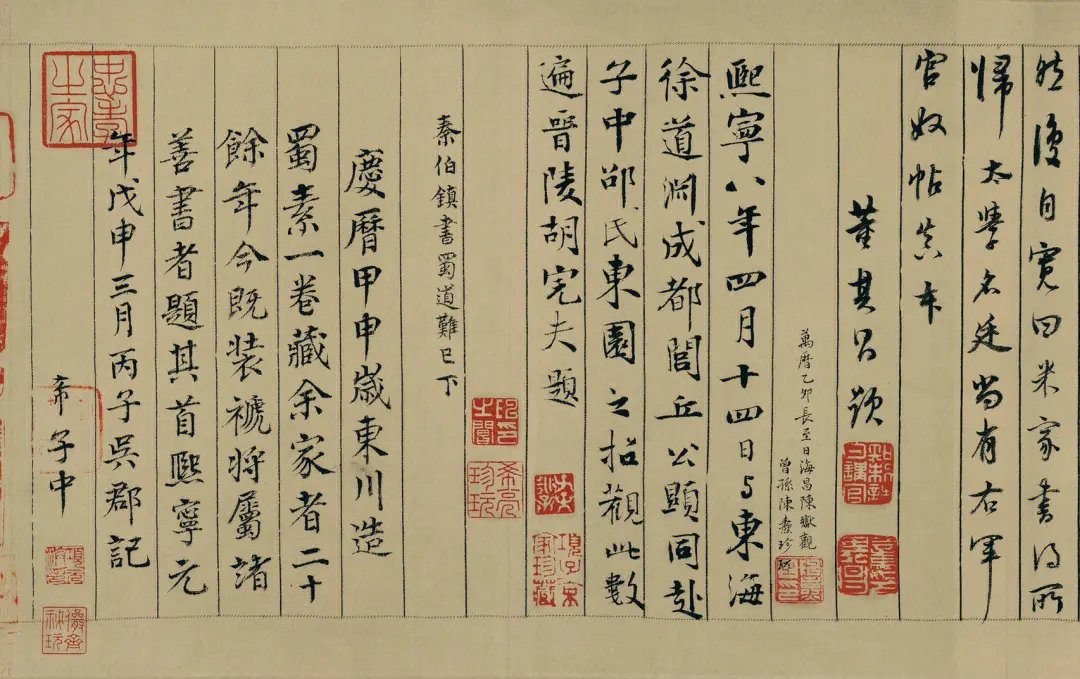 然後自寬曰米家書得所
歸太學名廷尚有右軍
官奴帖真本
董其昌題
萬曆乙卯長至日海昌陳瓛觀
曾孫陳熹珍
熙寧八年四月十四日与東海
徐道淵成都閭丘公顯同赴
子中邵氏東園之招觀此數
遍晉陵胡完夫題
秦伯鎮書蜀道難已下
慶曆甲申歲東川造
蜀素一卷藏余家者二十
餘年今既裝褫將屬諸
善書者題其首熙寧元
年戊申三月丙子吳郡記
子中
忠孝之家
知制誥日講官
董其昌
項子京家珍藏